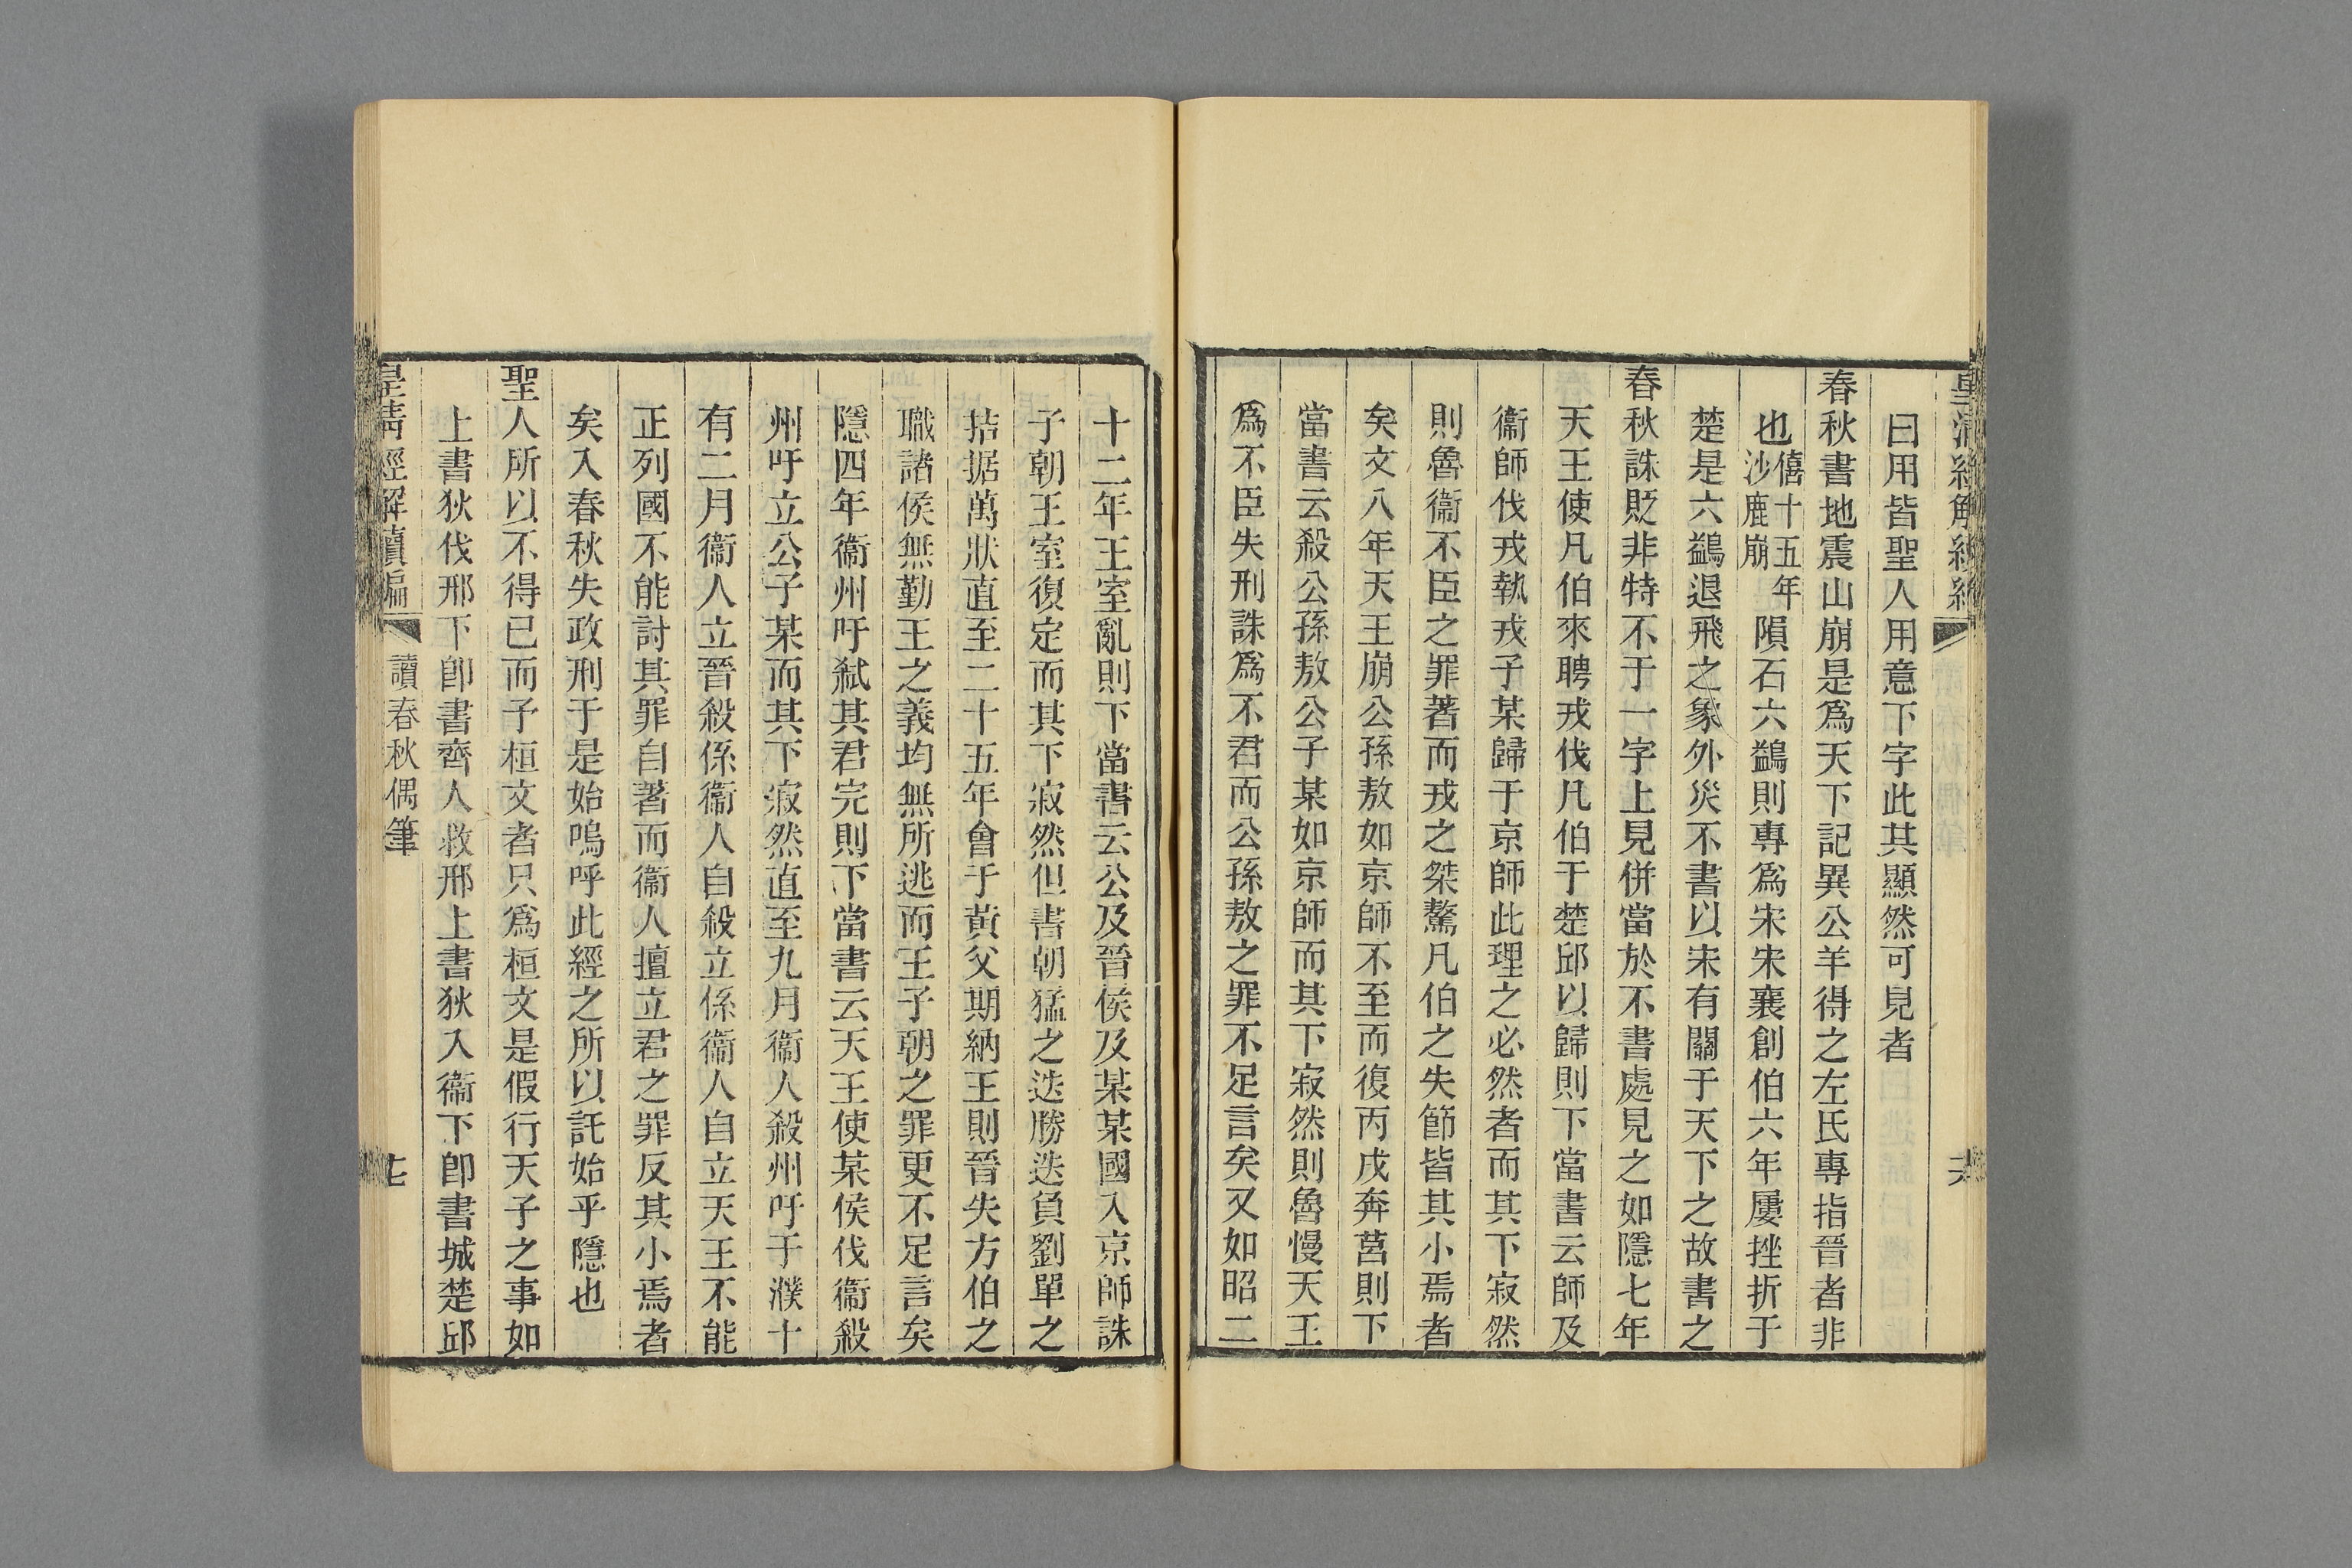 曰用皆聖人用意下字此其顯然可見者
春秋書地震山崩是爲天下記異公羊得之左氏專指晉者非
也僖十五年沙鹿崩隕石六鷁則專爲宋宋襄創伯六年屢挫折于
楚是六鷁退飛之象外災不書以宋有關于天下之故書之
春秋誅貶非特不于一字上見併當於不書處見之如隱七年
天王使凡伯來聘戎伐凡伯于楚邱以歸則下當書云師及
衞師伐戎執戎子某歸于京師此理之必然者而其下寂然
則魯衞不臣之罪著而戎之桀驁凡伯之失節皆其小焉者
矣文八年天王崩公孫敖如京師不至而復丙戌奔莒則下
當書云殺公孫敖公子某如京師而其下寂然則魯慢天王
爲不臣失刑誅爲不君而公孫敖之罪不足言矣又如昭二
十二年王室亂則下當書云公及晉侯及某某國入京師誅
子朝王室復定而其下寂然但書朝猛之迭勝迭負劉單之
拮据萬狀直至二十五年會于黃父期納王則晉失方伯之
職諸侯無勤王之義均無所逃而王子朝之罪更不足言矣
隱四年衞州吁弒其君完則下當書云天王使某侯伐衞殺
州吁立公子某而其下寂然直至九月衞人殺州吁于濮十
有二月衞人立晉殺係衞人自殺立係衞人自立天王不能
正列國不能討其罪自著而衞人擅立君之罪反其小焉者
矣入春秋失政刑于是始嗚呼此經之所以託始乎隱也
聖人所以不得已而予桓文者只爲桓文是假行天子之事如
上書狄伐邢下卽書齊人救邢上書狄入衞下卽書城楚邱
皇清經解續編
讀春秋偶筆
七